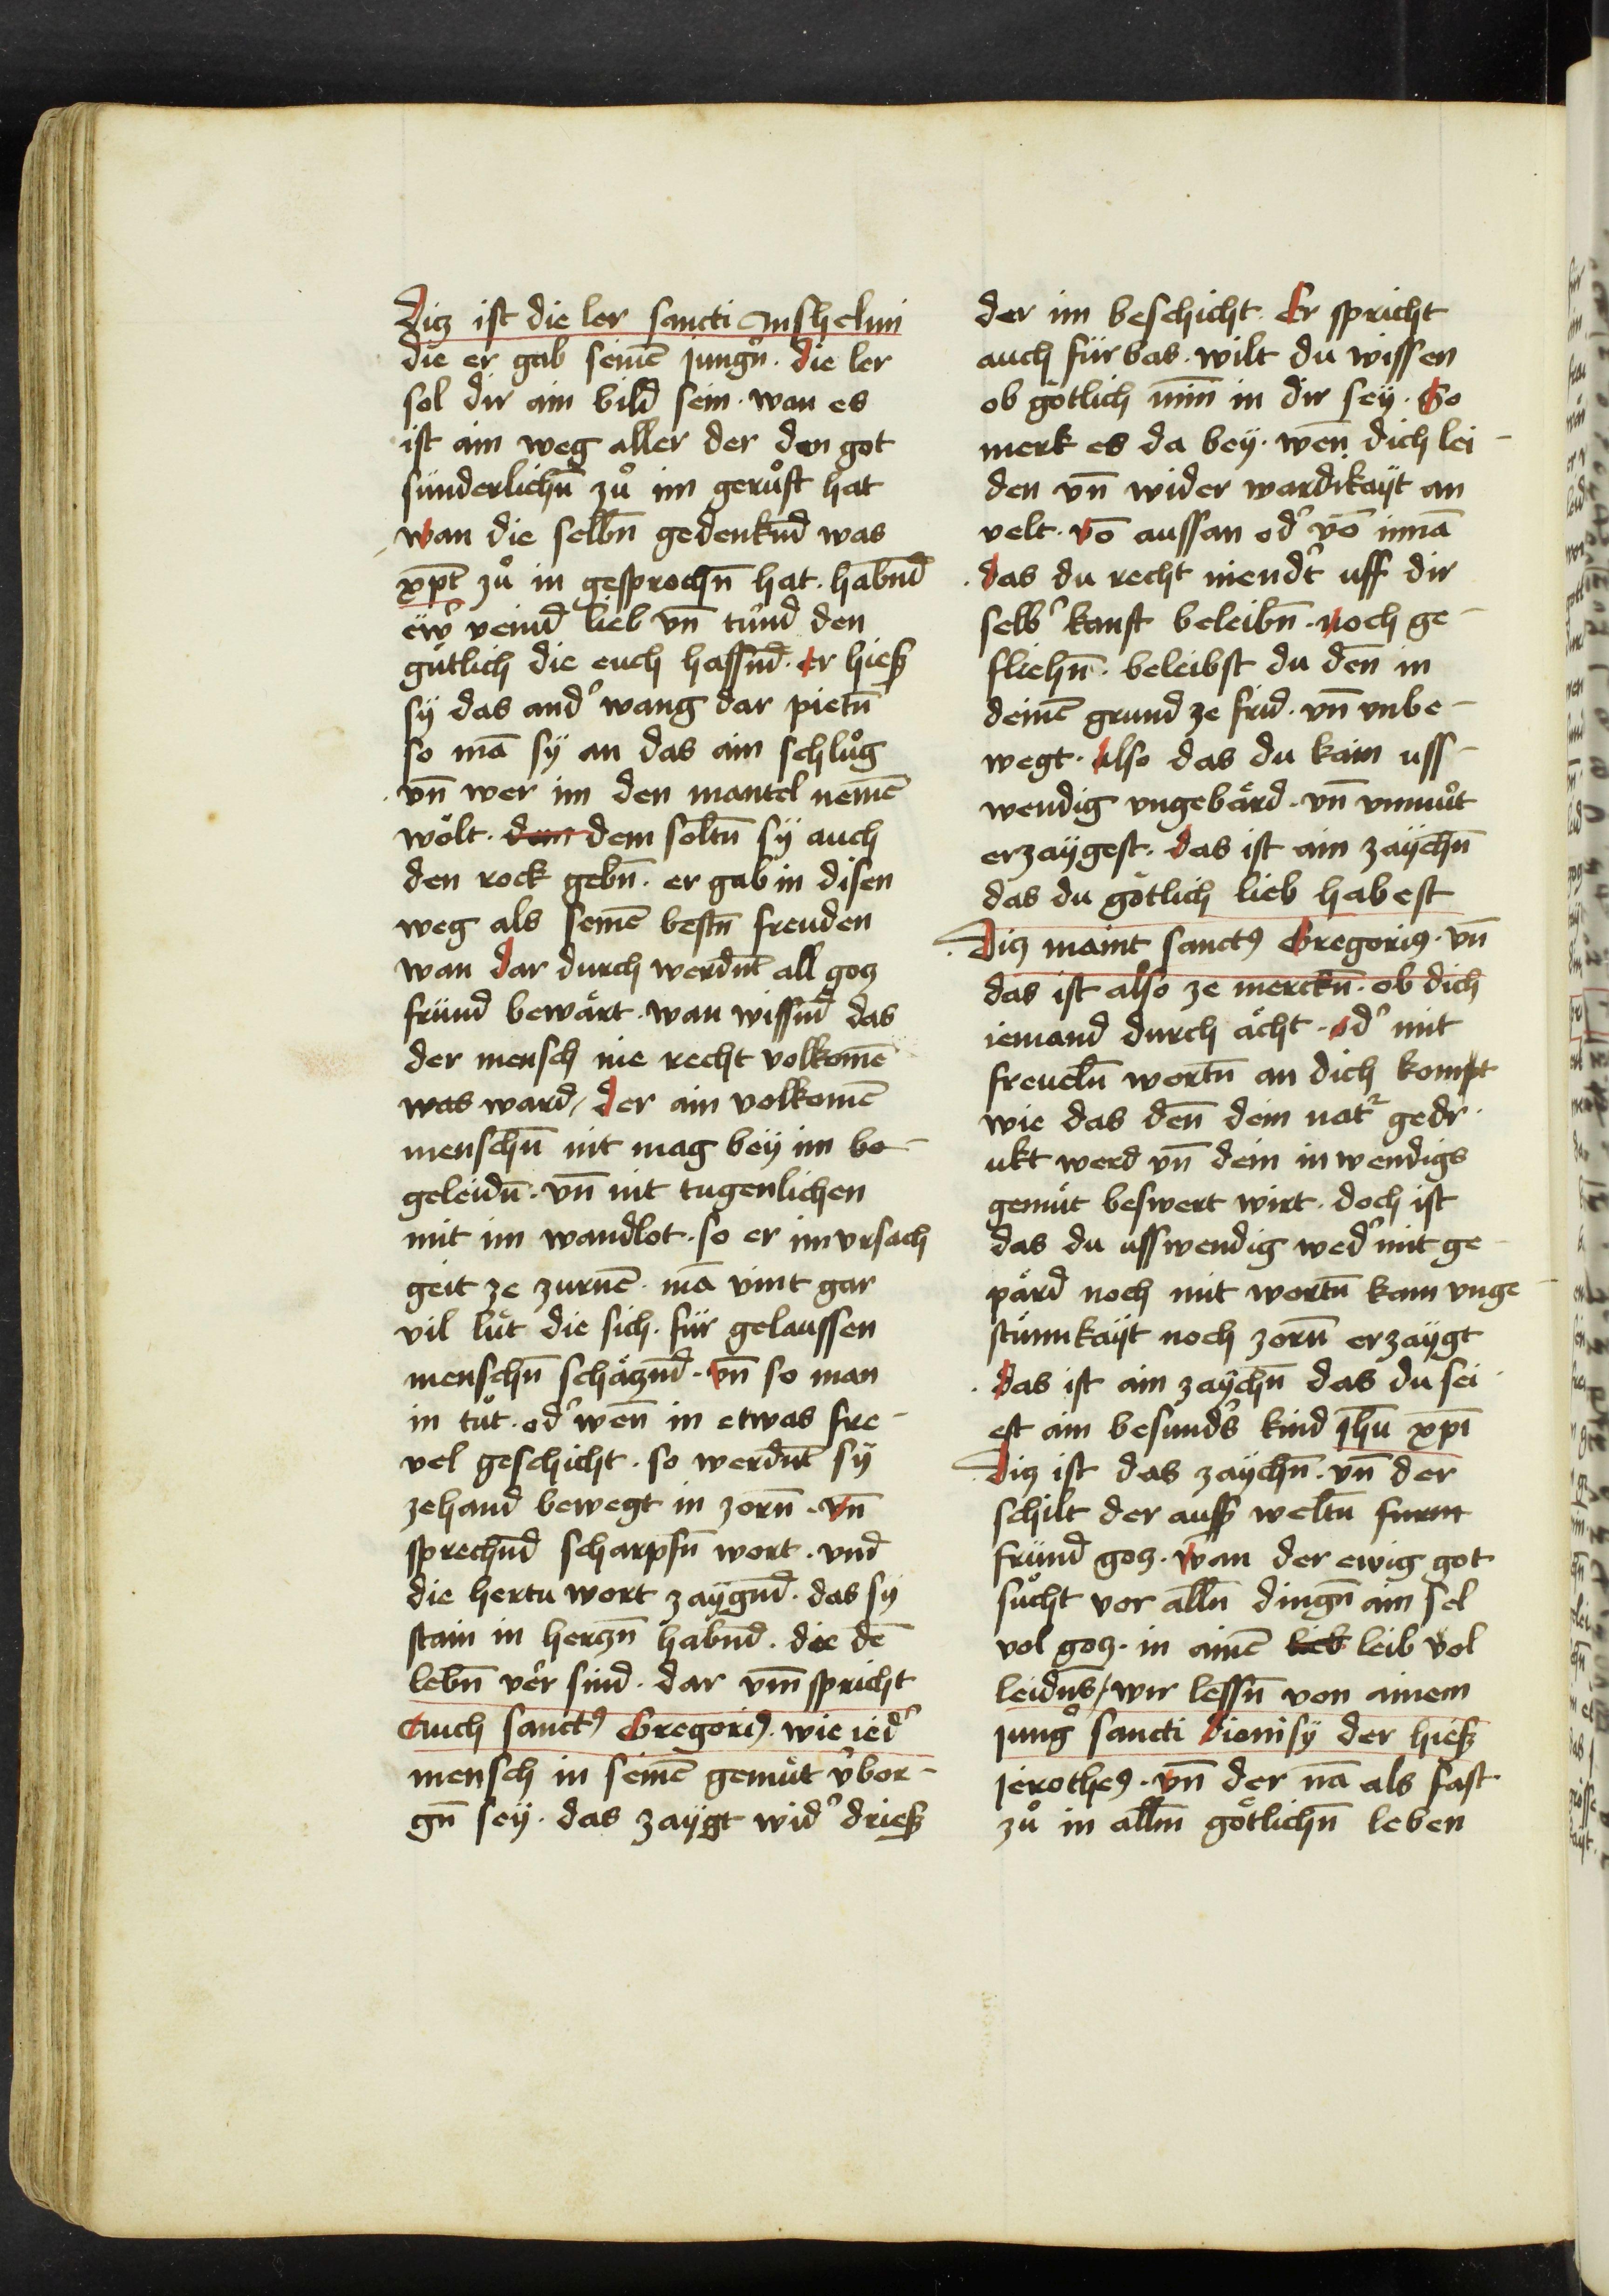 Diz ist die ler sancti Anshelmi
die er gab seinē jungn̄ · die ler
sol dir ain bild sein · wan es
ist ain weg aller der den got
sünderlichn̄ zů im gerůft hat
wan die selbn̄ gedenkn̄d was
xp̄t zů in gesprochn̄ hat · habn̄d
ew̉ veind lieb vn̄ tůnd den
gütlich die euch hassn̄d · er hieß
sÿ das and̉ wang dar pietn̄
so mā sÿ an das ain schlůg
vn̄ wer im den mantel nemē
wölt · den dem soltn̄ sÿ auch
den rock gebn̄ · er gab in disen
weg als seinē bestn̄ freuden
wan dar durch werdn̄t all goz
fründ bewärt · wan wissn̄d das
der mensch nie recht volkomē
was ward / der ain volkomē
menschn̄ nit mag beÿ im be-
geleidn̄ · vn̄ nit tugenlichen
mit im wandlot · so er im vrsach
geit ze zurnē · mā vint gar
vil lüt die sich · für gelaussen
menschn̄ schäzn̄d · vn̄ so man
in tůt · od̉ wen̄ in etwas fre-
vel geschicht · so werdn̄t sÿ
zehand bewegt in zorn̄ · vn̄
sprechn̄d scharpfn̄ wort · vnd
die hertu wort zaÿgn̄d · das sÿ
stain in herczn̄ habn̄d · die dē
lebn̄ ver̉ sind · dar vm̄ spricht
Auch sanctꝰ Gregoriꝰ · wie ied̉
mensch in seinē gemüt v̉bor-
gn̄ seÿ · das zaÿgt wid̉ drieß
der im beschicht · Er spricht
auch für bas · wilt du wissen
ob götlich min̄ in dir seÿ · So
merk es da beÿ · wen̄ dich lei-
den vn̄ wider wardikaÿt an
velt · vō aussan od̉ vō innā
das du recht niend̉t uff dir
selb̉ kanst beleibn̄ · noch ge-
fliehn̄ · beleibst du den̄ in
deinē grund ze frid · vn̄ vnbe-
wegt · also das du kain uss-
wendig vngebärd · vn̄ vnmůt
erzaÿgest · das ist ain zaÿchn̄
das du götlich lieb habest
Diz maint sanctꝰ Gregoriꝰ · vn̄
das ist also ze merckn̄ · ob dich
iemand durch ächt · od̉ mit
freueln̄ wortn̄ an dich kompt
wie das den̄ dein nat̉ gedr
ukt werd vn̄ dein inwendigs
gemüt beswert wirt · doch ist
das du usswendig wed̉ mit ge-
pärd noch mit wortn̄ kain vnge-
stümkaÿt noch zorn̄ erzaÿgt
das ist ain zaÿchn̄ das du sei
est ain besund̉s kind ih̄u xp̄i
Diz ist das zaÿchn̄ · vn̄ der
schilt der auß weltn̄ furnt
fründ goz · wan der ewig got
sůcht vor alln̄ dingn̄ ain sel
vol goz · in ainē lieb leib vol
leidn̄s / wir lessn̄ von ainem
jung̉ sancti Dionisÿ der hieß
jerotheꝰ · vn̄ der nā als fast
zů in alln̄ götlichn̄ leben